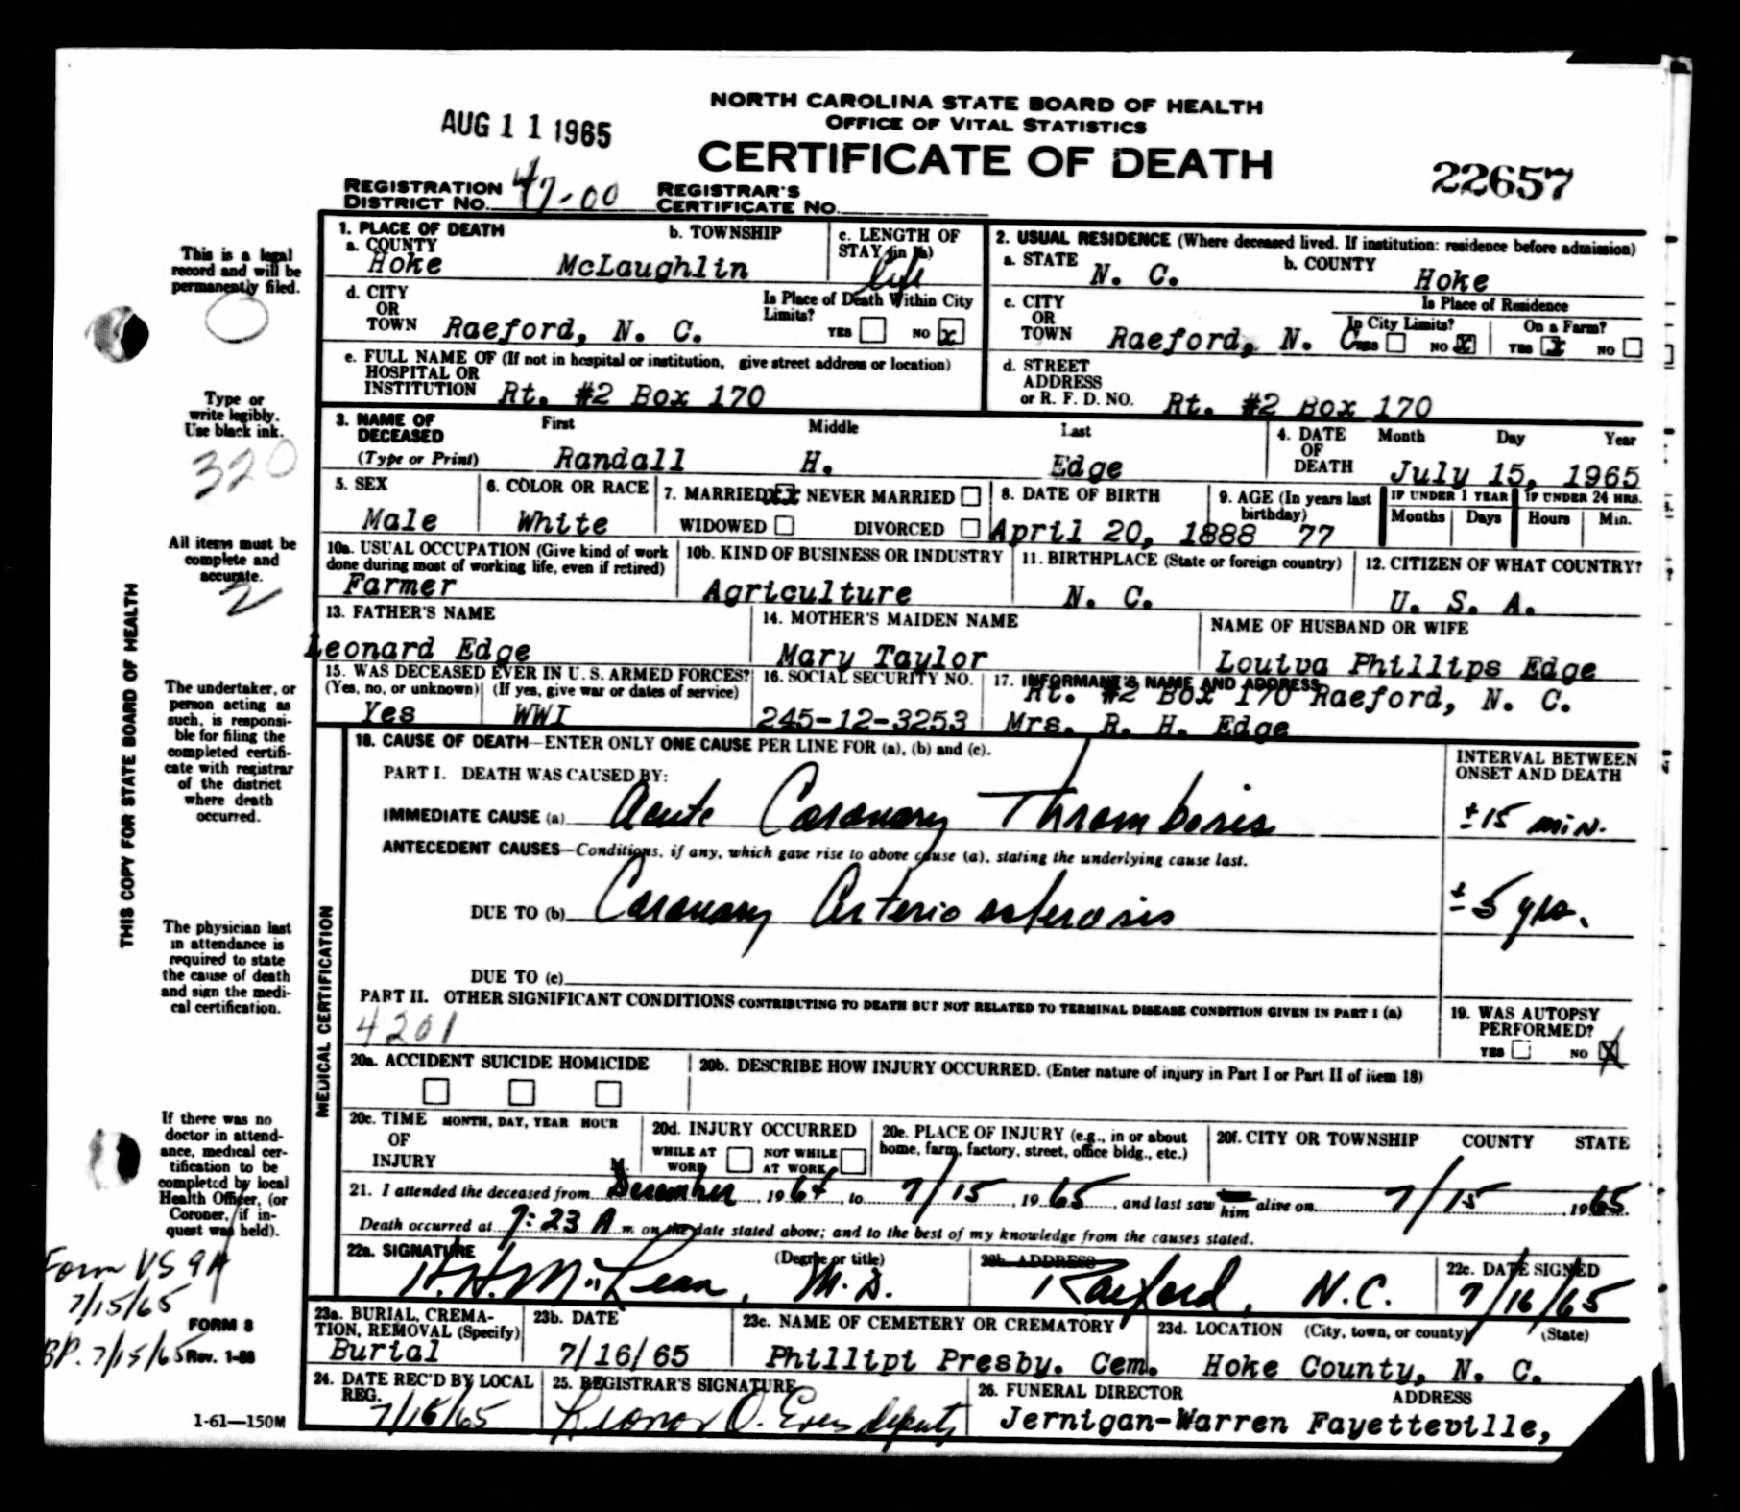 NORTH CAROLINA STATE BOARD OF HEALTH
OFFICE OF VITAL STATISTICS
AUG 11 1965
CERTIFICATE OF DEATH
22657
REGISTRATION DISTRICT NO. 47-00 REGISTRAR'S CERTIFICATE NO.
This is a legal record and will be permanently filed.
Type or write legibly. Use black ink.
320
All items must be complete and accurate.
2
THIS COPY FOR STATE BOARD OF HEALTH
The undertaker, or person acting as such, is responsible for filing the completed certificate with registrar of the district where death occurred.
The physician last in attendance is required to state the cause of death and sign the medical certification.
If there was no doctor in attendance, medical certification to be completed by local Health Officer, (or Coroner, if inquest was held).
Form VS 9A
7/15/65
BP. 7/15/65
FORM 8
Rev. 1-66
1-61—150M
1. PLACE OF DEATH
a. COUNTY Hoke
b. TOWNSHIP McLaughlin
c. LENGTH OF STAY (in 1b) life
d. CITY OR TOWN Raeford, N. C.
Is Place of Death Within City Limits? YES NO x
e. FULL NAME OF HOSPITAL OR INSTITUTION (If not in hospital or institution, give street address or location) Rt. #2 Box 170
2. USUAL RESIDENCE (Where deceased lived. If institution: residence before admission)
a. STATE N. C.
b. COUNTY Hoke
c. CITY OR TOWN Raeford, N. C.
Is Place of Residence
In City Limits? YES NO x
On a Farm? YES x NO
d. STREET ADDRESS or R. F. D. NO. Rt. #2 Box 170
3. NAME OF DECEASED (Type or Print) First Middle Last
Randall H. Edge
4. DATE OF DEATH Month Day Year
July 15, 1965
5. SEX Male
6. COLOR OR RACE White
7. MARRIED xx NEVER MARRIED WIDOWED DIVORCED
8. DATE OF BIRTH April 20, 1888
9. AGE (In years last birthday) 77
IF UNDER 1 YEAR Months Days
IF UNDER 24 HRS. Hours Min.
10a. USUAL OCCUPATION (Give kind of work done during most of working life, even if retired) Farmer
10b. KIND OF BUSINESS OR INDUSTRY Agriculture
11. BIRTHPLACE (State or foreign country) N. C.
12. CITIZEN OF WHAT COUNTRY? U. S. A.
13. FATHER'S NAME Leonard Edge
14. MOTHER'S MAIDEN NAME Mary Taylor
NAME OF HUSBAND OR WIFE Louiva Phillips Edge
15. WAS DECEASED EVER IN U. S. ARMED FORCES?
(Yes, no, or unknown) Yes
(If yes, give war or dates of service) WWI
16. SOCIAL SECURITY NO. 245-12-3253
17. INFORMANT'S NAME AND ADDRESS
Rt. #2 Box 170 Raeford, N. C.
Mrs. R. H. Edge
MEDICAL CERTIFICATION
18. CAUSE OF DEATH—ENTER ONLY ONE CAUSE PER LINE FOR (a), (b) and (c).
INTERVAL BETWEEN ONSET AND DEATH
PART I. DEATH WAS CAUSED BY:
IMMEDIATE CAUSE (a) Acute Coronary Thrombosis ±15 min.
ANTECEDENT CAUSES—Conditions, if any, which gave rise to above cause (a), stating the underlying cause last.
DUE TO (b) Coronary Arteriosclerosis ±5 yrs.
DUE TO (c)
PART II. OTHER SIGNIFICANT CONDITIONS CONTRIBUTING TO DEATH BUT NOT RELATED TO TERMINAL DISEASE CONDITION GIVEN IN PART I (a)
4201
19. WAS AUTOPSY PERFORMED? YES NO X
20a. ACCIDENT SUICIDE HOMICIDE
20b. DESCRIBE HOW INJURY OCCURRED. (Enter nature of injury in Part I or Part II of item 18)
20c. TIME OF INJURY MONTH, DAY, YEAR HOUR M.
20d. INJURY OCCURRED WHILE AT WORK NOT WHILE AT WORK
20e. PLACE OF INJURY (e.g., in or about home, farm, factory, street, office bldg., etc.)
20f. CITY OR TOWNSHIP COUNTY STATE
21. I attended the deceased from December, 1964 to 7/15, 1965, and last saw him alive on 7/15 1965.
Death occurred at 9:23 A m. on the date stated above; and to the best of my knowledge from the causes stated.
22a. SIGNATURE (Degree or title) H. H. McLean, M. D.
22b. ADDRESS Raeford, N.C.
22c. DATE SIGNED 7/16/65
23a. BURIAL, CREMATION, REMOVAL (Specify) Burial
23b. DATE 7/16/65
23c. NAME OF CEMETERY OR CREMATORY Phillipi Presby. Cem.
23d. LOCATION (City, town, or county) (State) Hoke County, N. C.
24. DATE REC'D BY LOCAL REG. 7/16/65
25. REGISTRAR'S SIGNATURE deputy
26. FUNERAL DIRECTOR ADDRESS
Jernigan-Warren Fayetteville,